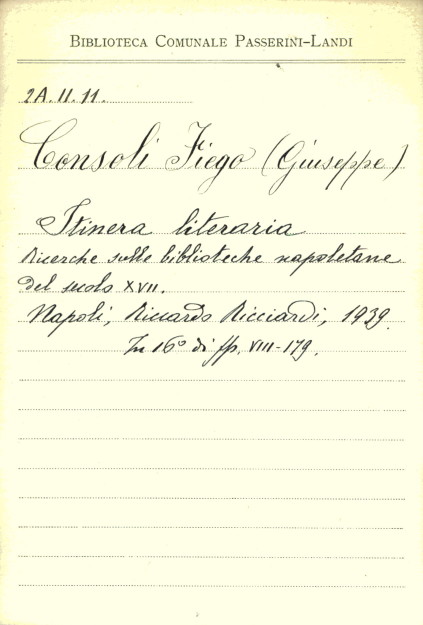 BIBLIOTECA COMUNALE PASSERINI-LANDI
2A.II.11.
Consoli Fiego (Giuseppe)
Itinera literaria
Ricerche sulle biblioteche napoletane
del secolo XVII.
Napoli, Riccardo Ricciardi, 1939.
In 16° di pp. VIII-179.